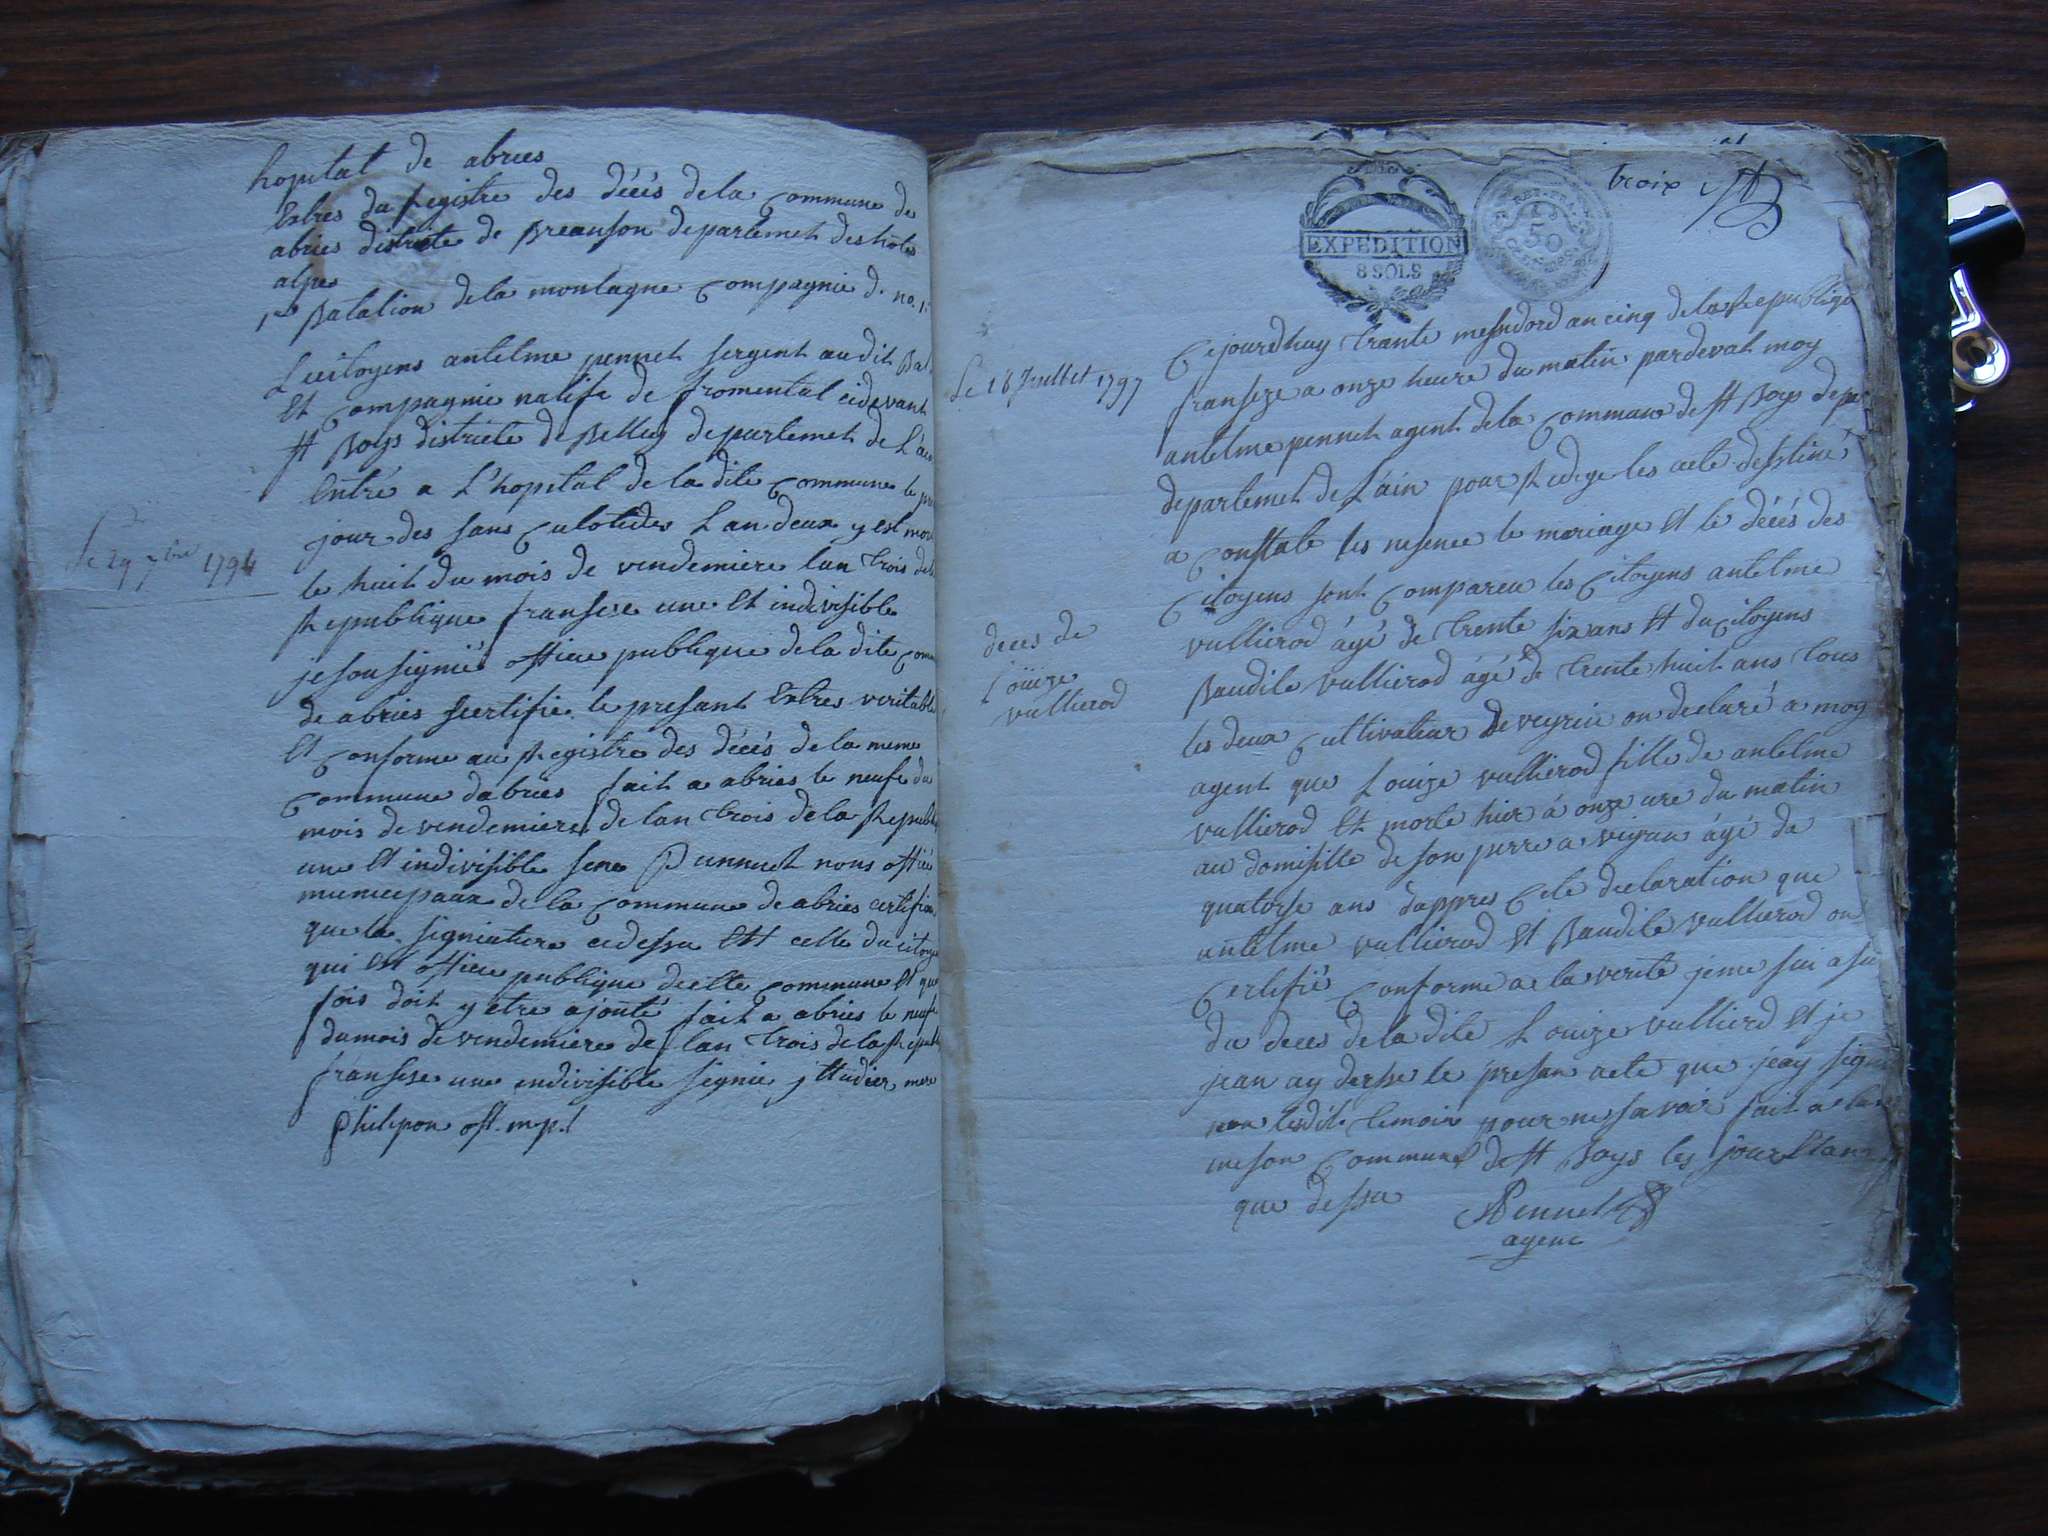 hopital de abries
Extres du Registre des décés de la Commune de
abries districte de Breanson departemet des hôtes
alpes
1er Batalion de la montagne Compagnie d. no. 1
Le citoyens antelme pennet sergent au dit Bat
Et Compagnie natife de fromental cidevant
st Boys districte de Belley departemet de L'ain
Entré a L'hopital de la dite Commune le pre
jour des sans Culotides L'an deux y est mort
le huit du mois de vendemiere lan trois de la
Republique fransese une Et indivisible
je sou signiés officie publique de la dite Com
de abries sertifie le presant Extres veritable
Et Conforme au Registre des décés de la meme
Commune dabries fait a abries le neufe du
mois de vendemiere de lan trois de la Republi
une Et indivisible nous officié
municipaux de la Commune de abries certifion
que la signiature cidessu Est celle du citoye
qui Est officie publique dicelle Commune Et que
fois doit y etre ajouté fait a abries le neufe
du mois de vendemiere de lan trois de la Republi
fransese une indivisible signie
Philipon off. mp.l
le 29 7bre 1794
troix
EXPEDITION
8 SOLS
50
CEN
Le 18 Juillet 1797
Cejourdhuy trante mesidord an cinq de la Republique
franseze a onze heure du matin pardevat moy
antelme pennet agent de la Commune de st Boys depar
departemet de Lain pour Redige les acte destiné
a Constate les nesence le mariage Et le décés des
Citoyens sont Compareu les Citoyens antelme
vullierod ágé de trente six ans Et du Citoyens
Baudile vullierod ágé de trente huit ans tous
les deux Cultivateur de veyrin on declaré a moy
agent que Louize vullierod fille de antelme
vullierod Et morte hier á onze ure du matin
au domisille de son perre a ágé de
quatorse ans dappres Cete declaration que
antelme vullierod Et Baudile vullierod on
Certifié Conforme a la verité jeme sui asu
du deces de la dite Louize vullierd Et je
jean ay desse le presan acte que jeay signé
non lesdit temoin pour ne savoir fait a la
meson Commune de st Boys les jour Et an
que dessu
Pennet
agent
deces de
Louize
vullierod